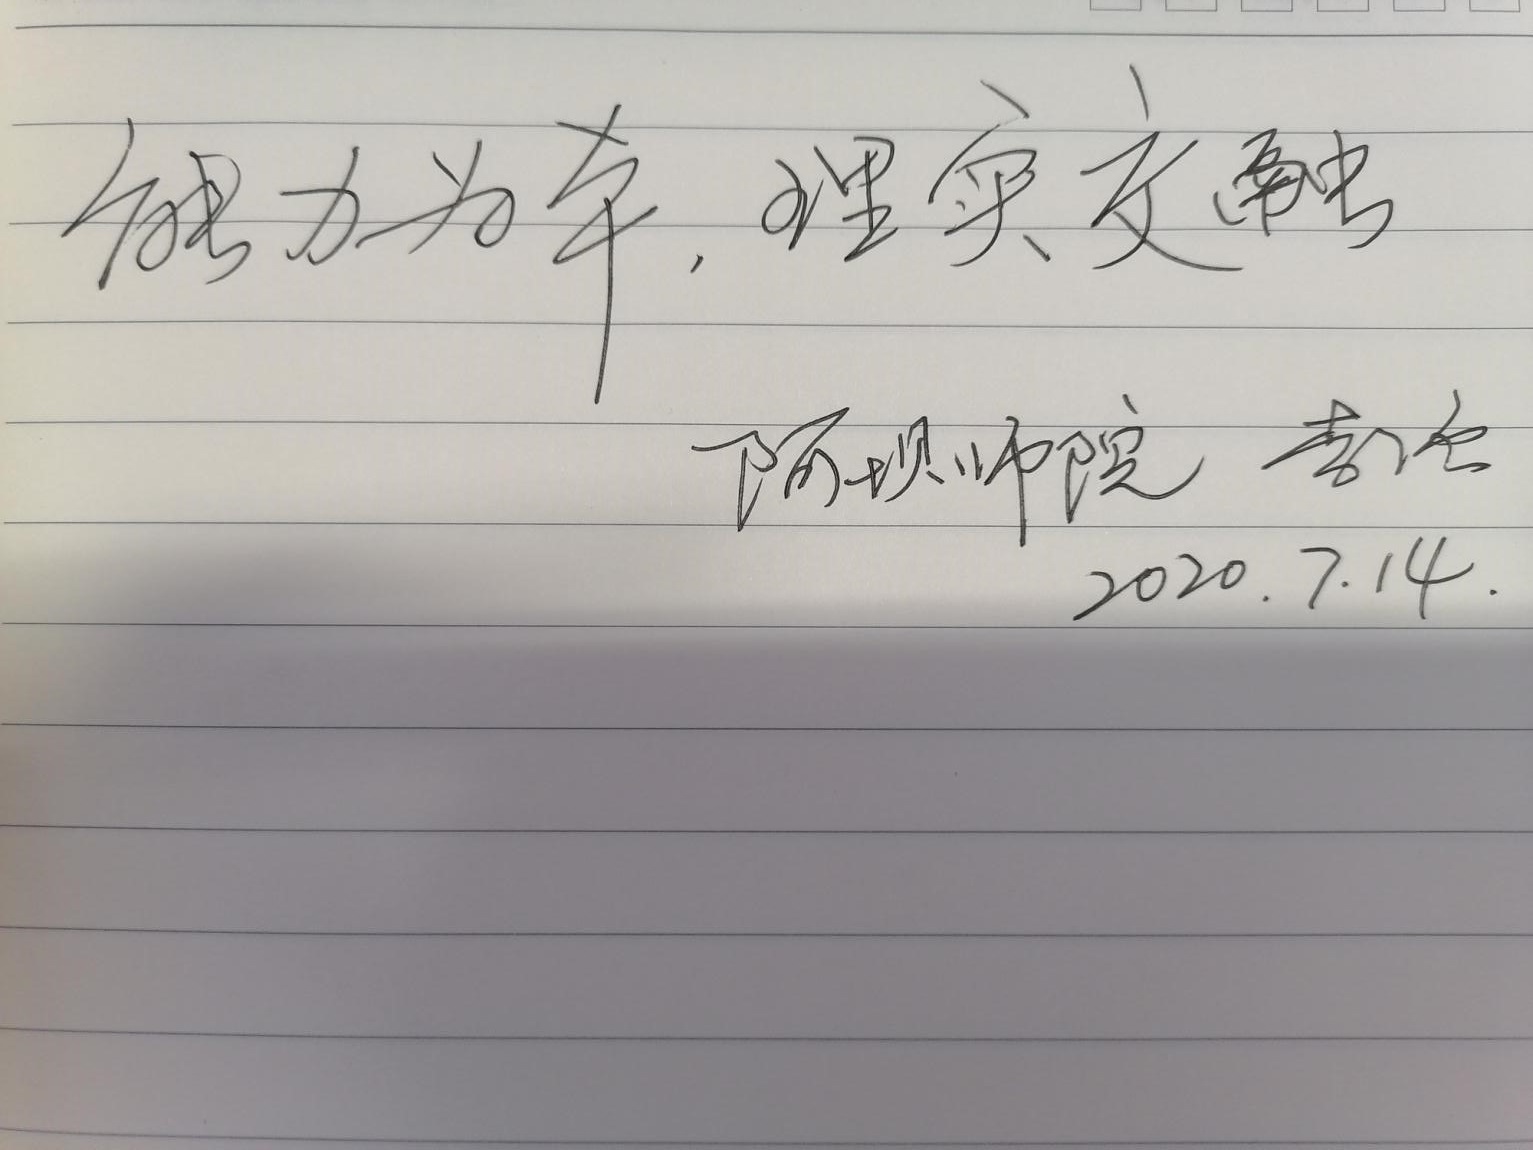 能力为本，理实交融
阿坝师院
2020.7.14.